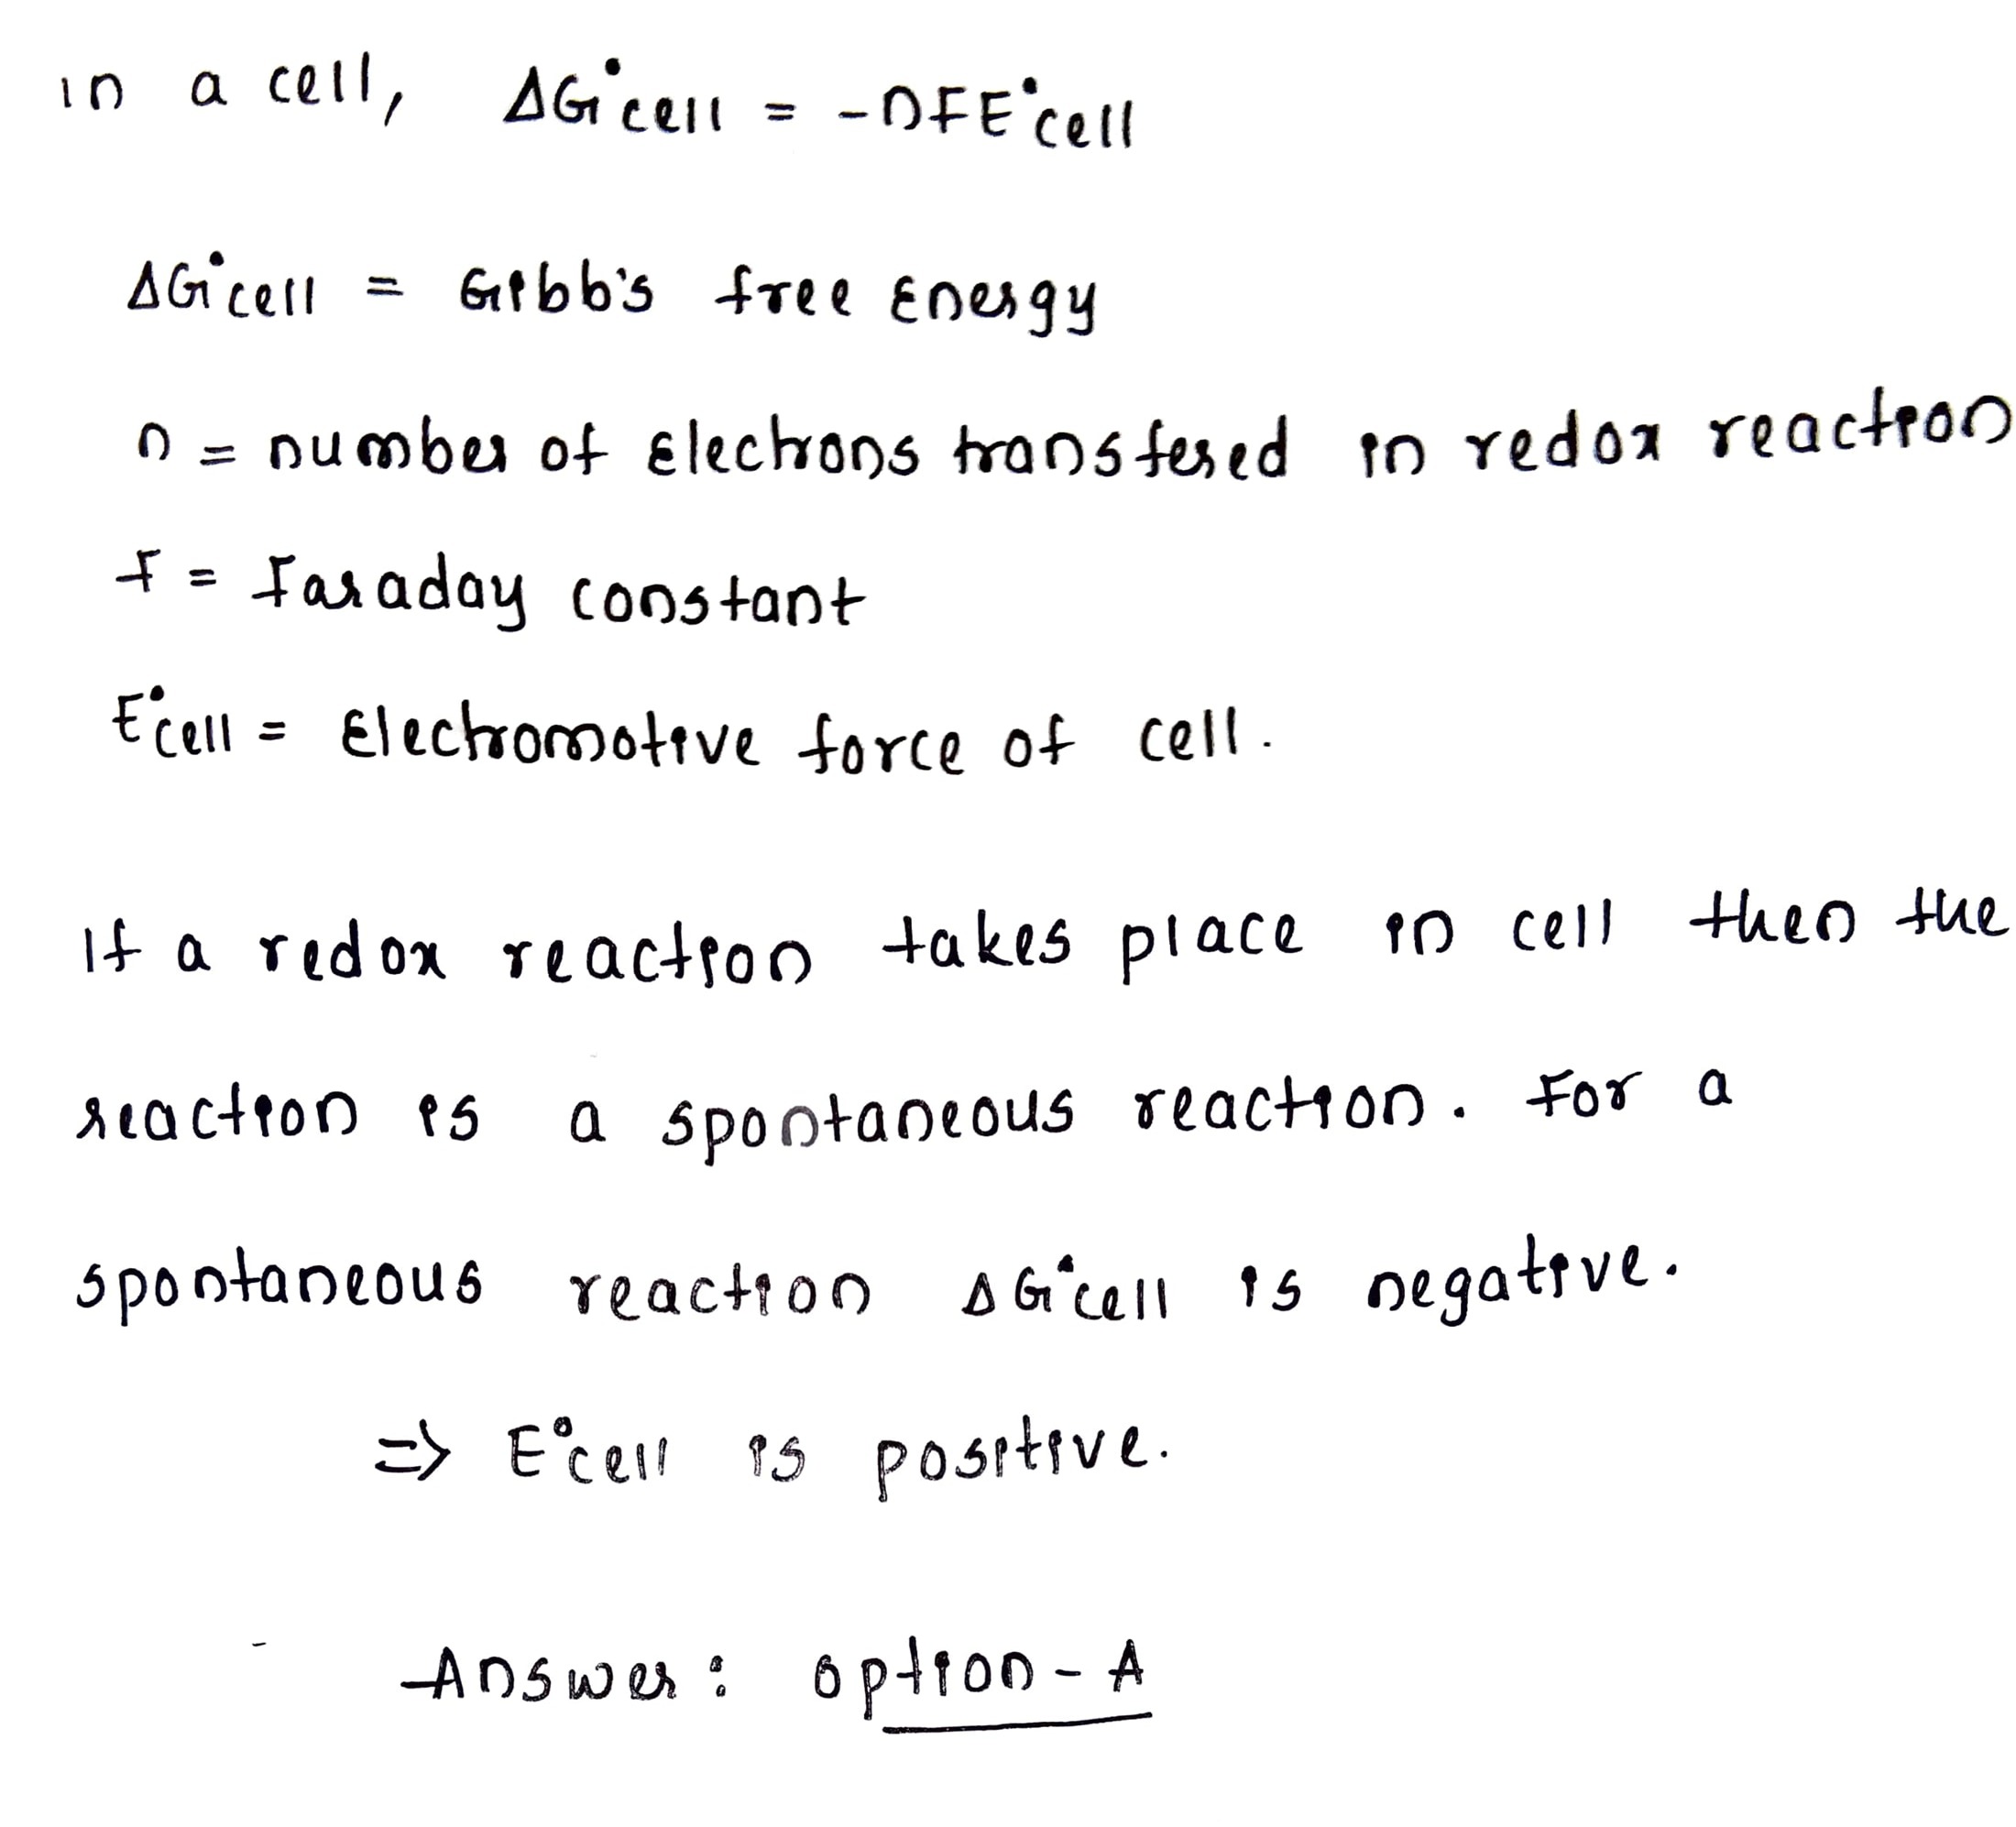 in a cell, ΔG°cell = -nFE°cell
ΔG°cell = Gibb's free Energy
n = number of Electrons transfered in redox reaction
F = Faraday constant
E°cell = Electromotive force of cell.
If a redox reaction takes place in cell then the
reaction is a spontaneous reaction. For a
spontaneous reaction ΔG°cell is negative.
=> E°cell is positive.
Answer: option-A